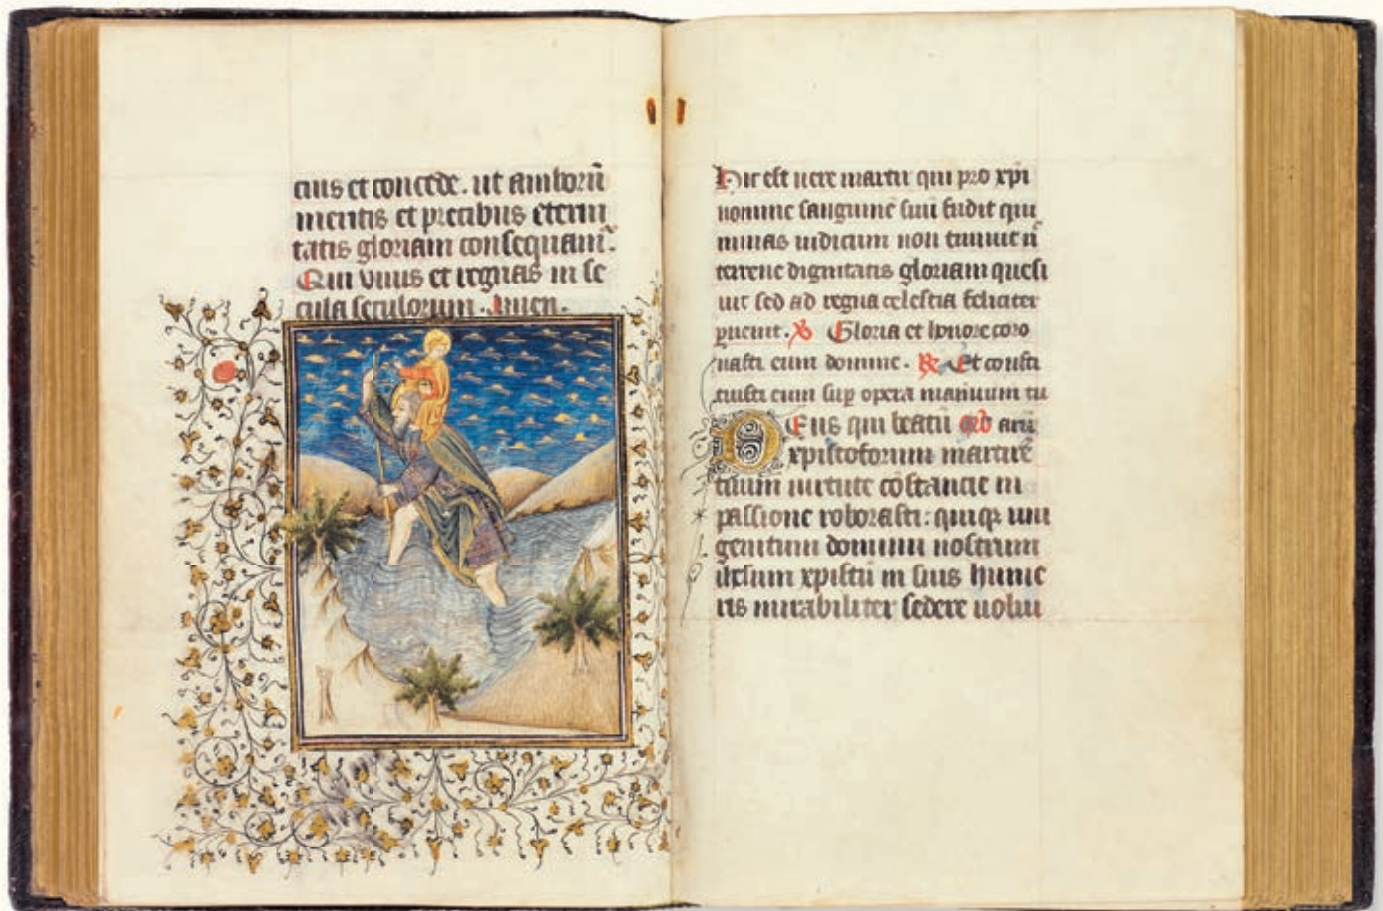 eius et concede. ut amborū
meritis et precibus eterni
tatis gloriam consequam̄.
Qui vivis et regnas in se
cula seculorum. Amen.
Hic est vere martir qui pro xpi
nomine sanguinē suū fudit qui
minas iudicum non timuit n̄
terrene dignitatis gloriam quesi
vit sed ad regna celestia feliciter
pervenit. V Gloria et honore coro
nasti eum domine. R Et consti
tuisti eum sup opera manuum tu
arū
Deus qui beatū orō
xpistoforum martirē
tuum virtute cōstancie in
passione roborasti: quiq; uni
genitum dominum nostrum
ihesum xpistū in suis hume
ris mirabiliter sedere volui